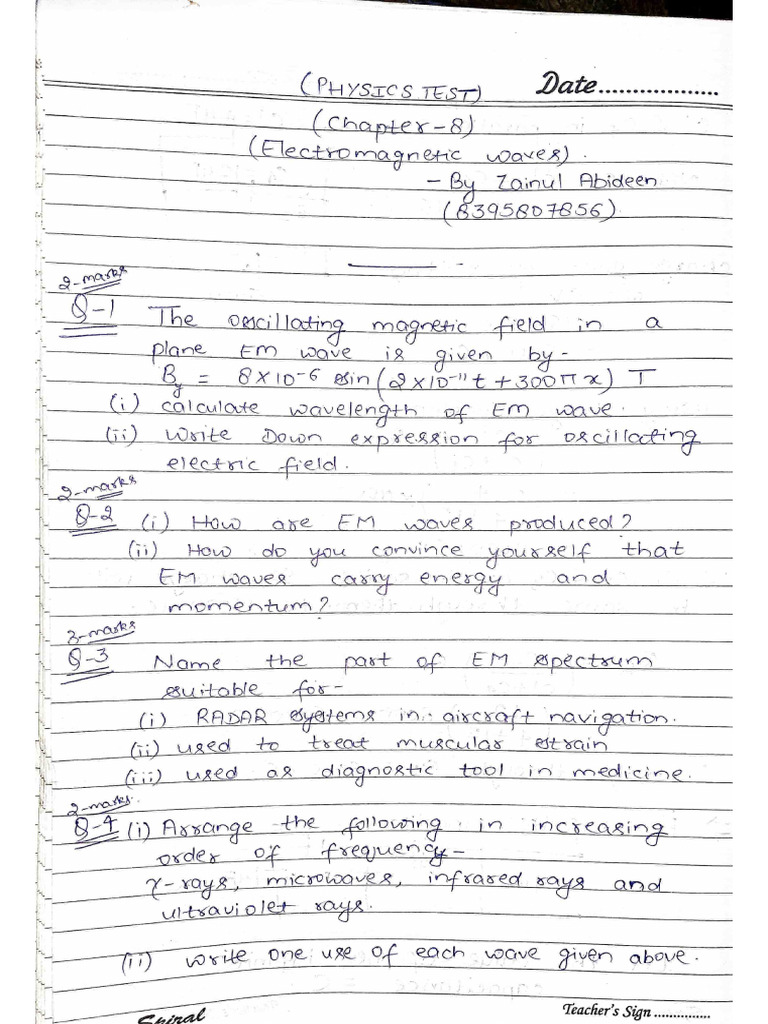 (PHYSICS TEST) Date...................
(Chapter-8)
(Electromagnetic waves).
- By Zainul Abideen
(8395807856)
2-marks
Q-1 The oscillating magnetic field in a
plane EM wave is given by-
By = 8×10-6 sin(2×10-11t + 300πx) T
(i) calculate wavelength of EM wave.
(ii) Write Down expression for oscillating
electric field.
2-marks
Q-2 (i) How are EM waves produced?
(ii) How do you convince yourself that
EM waves carry energy and
momentum?
3-marks
Q-3 Name the part of EM spectrum
suitable for-
(i) RADAR systems in aircraft navigation.
(ii) used to treat muscular strain
(iii) used as diagnostic tool in medicine.
2-marks.
Q-4 (i) Arrange the following in increasing
order of frequency-
γ-rays, microwaves, infrared rays and
ultraviolet rays.
(ii) write one use of each wave given above.
Spiral Teacher's Sign ..............